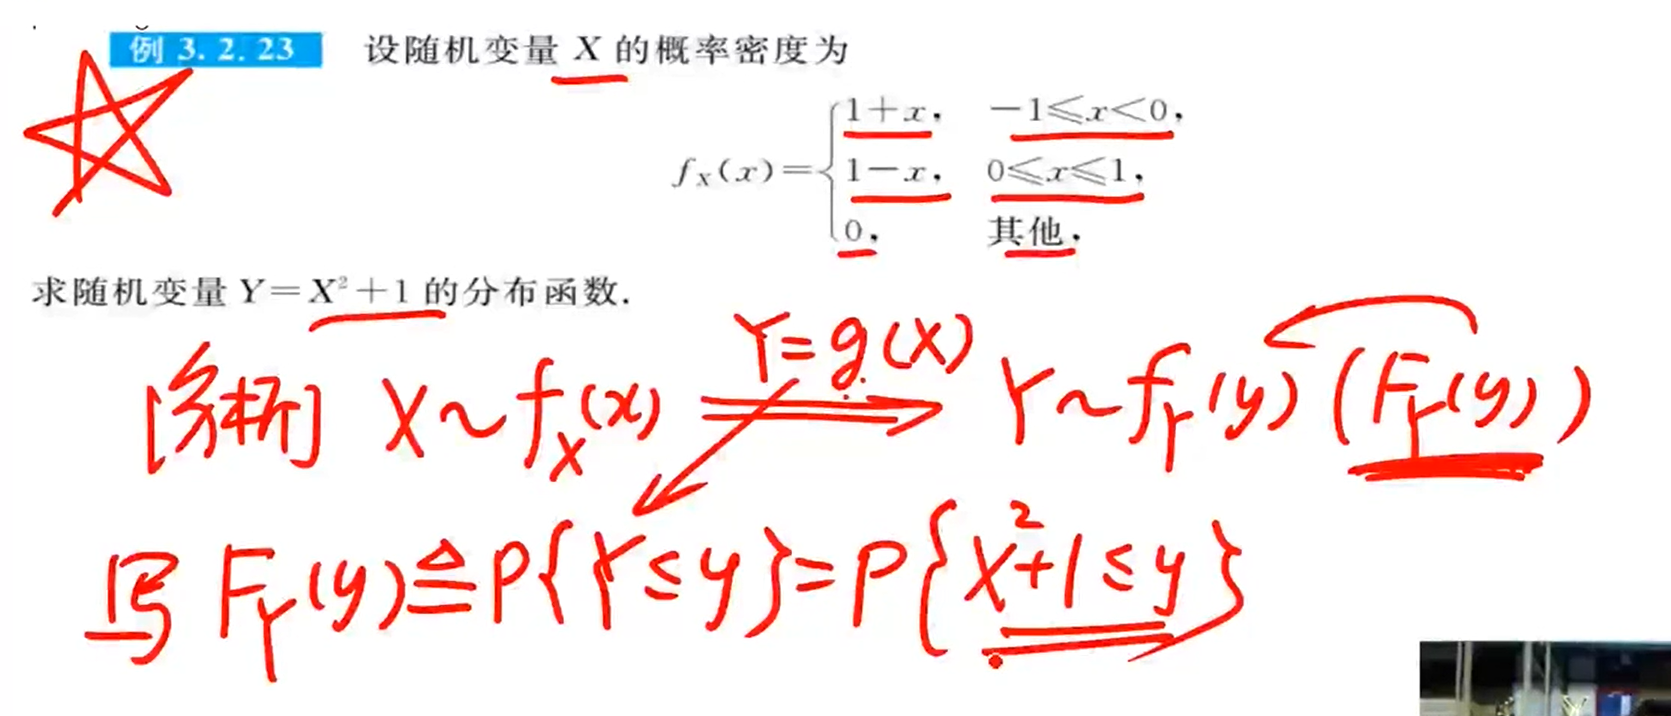 例 3.2.23 设随机变量 X 的概率密度为
1+x, -1≤x<0,
f_X(x)={1-x, 0≤x≤1,
0, 其他,
求随机变量 Y=X²+1 的分布函数.
[分析] X~f_X(x) Y=g(X) Y~f_Y(y) (F_Y(y))
写 F_Y(y)≜P{Y≤y}=P{X²+1≤y}